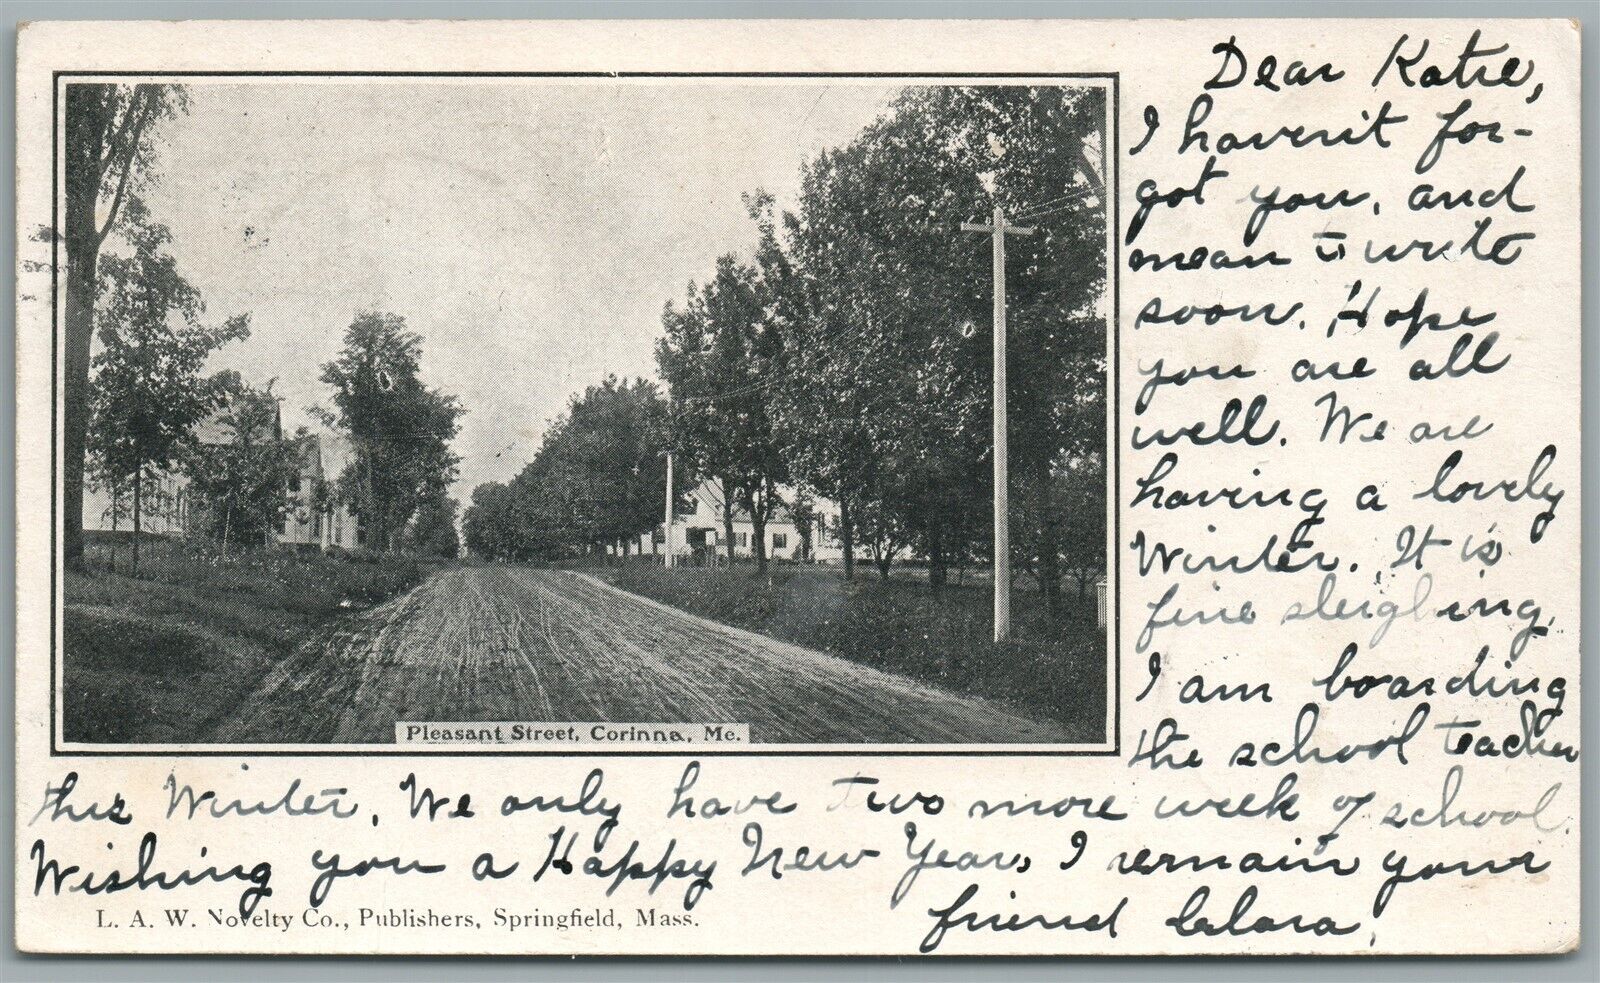 Dear Katie,
I haven't for-
got you, and
mean to write
soon. Hope
you are all
well. We are
having a lovely
Winter. It is
fine sleighing.
I am boarding
the school teacher
this Winter. We only have two more week of school.
Wishing you a Happy New Year, I remain your
friend Clara.
Pleasant Street, Corinna, Me.
L. A. W. Novelty Co., Publishers, Springfield, Mass.